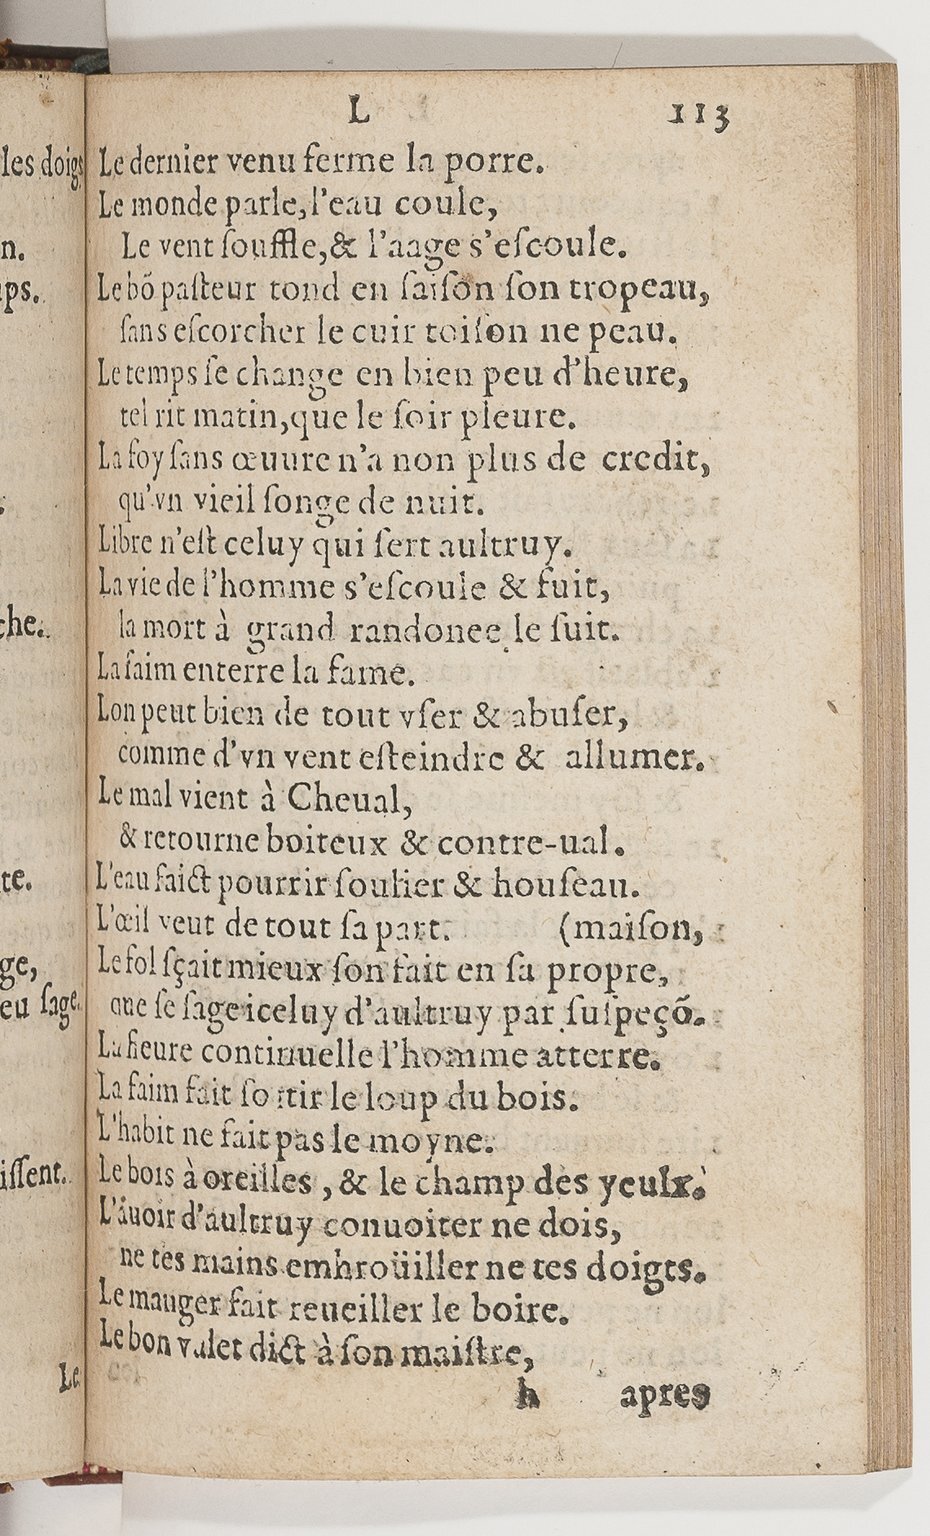 L 113
Le dernier venu ferme la porre.
Le monde parle, l'eau coule,
Le vent ſouffle, & l'aage s'eſcoule.
Le bõ paſteur tond en ſaiſon ſon tropeau,
ſans eſcorcher le cuir toiſon ne peau.
Le temps ſe change en bien peu d'heure,
tel rit matin, que le ſoir pleure.
La foy ſans œuure n'a non plus de credit,
qu'vn vieil ſonge de nuit.
Libre n'eſt celuy qui ſert aultruy.
La vie de l'homme s'eſcoule & fuit,
la mort à grand randonee le ſuit.
La faim enterre la fame.
Lon peut bien de tout vſer & abuſer,
comme d'vn vent eſteindre & allumer.
Le mal vient à Cheual,
& retourne boiteux & contre-ual.
L'eau faict pourrir ſoulier & houſeau.
L'œil veut de tout ſa part. (maiſon,
Le fol ſçait mieux ſon fait en ſa propre,
que ſe ſage iceluy d'aultruy par ſuſpeçõ.
La fieure continuelle l'homme atterre.
La faim fait ſortir le loup du bois.
L'habit ne fait pas le moyne.
Le bois à oreilles, & le champ des yeulx.
L'auoir d'aultruy conuoiter ne dois,
ne tes mains embroüiller ne tes doigts.
Le manger fait reueiller le boire.
Le bon valet dict à ſon maiſtre,
h apres
les doigs
n.
ps.
che.
te.
ge,
eu ſage.
iſſent.
Le